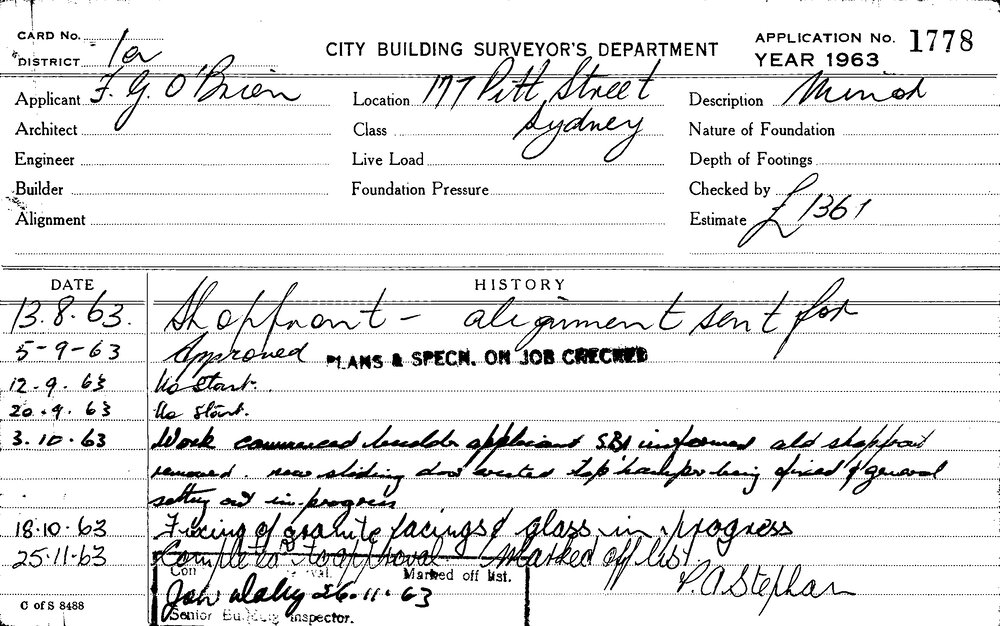 CARD No.
DISTRICT 1a
CITY BUILDING SURVEYOR'S DEPARTMENT
APPLICATION No. 1778
YEAR 1963
Applicant F. G. O'Brien
Location 177 Pitt Street
Sydney
Description Minor
Architect
Class
Nature of Foundation
Engineer
Live Load
Depth of Footings
Builder
Foundation Pressure
Checked by
Alignment
Estimate £1361
DATE
HISTORY
13.8.63. Shopfront - alignment sent for
5-9-63 Approved PLANS & SPECN. ON JOB CHECKED
12.9.63 No start.
20.9.63 No start.
3.10.63 Work commenced builder applicant SBI informed old shopfront
removed. new sliding door erected being fixed & general
setting out in progress
18.10.63 Fixing of granite facings & glass in progress
25.11.63 Completed to approval Marked off list.
P. A Stephan
Marked off list.
26.11.63
Senior Building Inspector.
C of S 8488